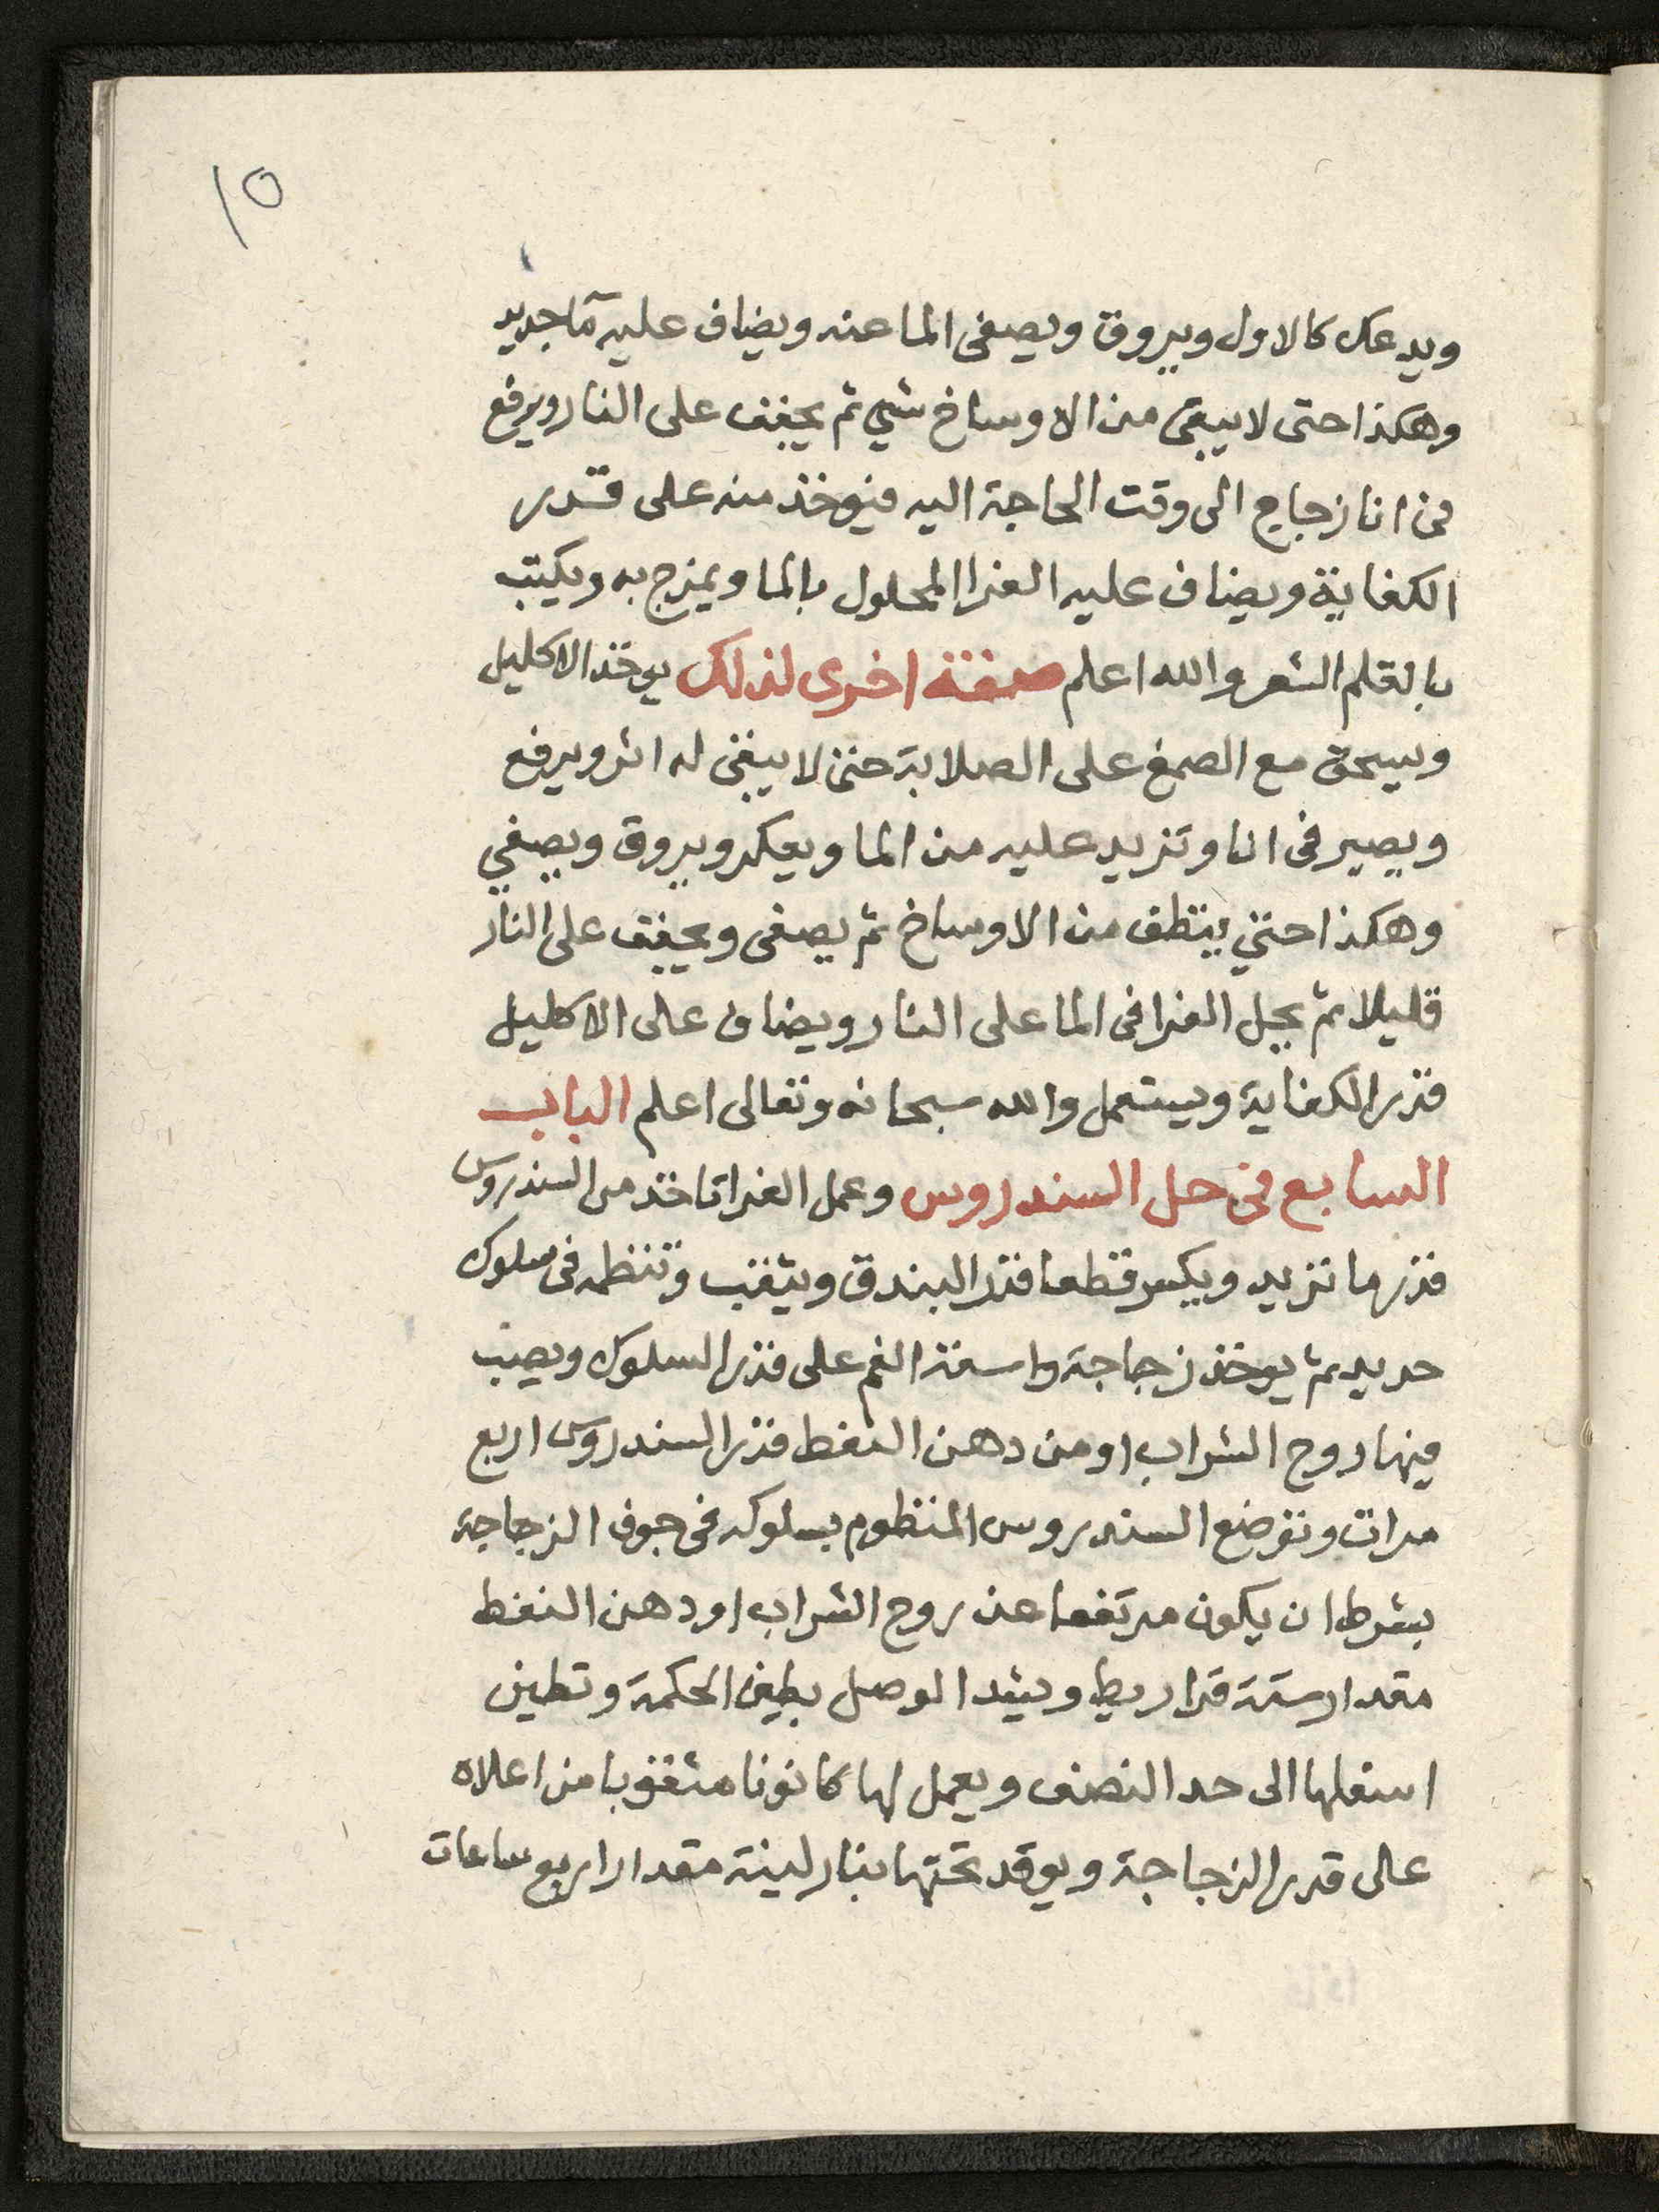 ١٥
ويدعك كالاول ويروق ويصفى الما عنه ويضاف عليه مآ جديد
وهكذا حتى لا يبقى من الاوساخ شي ثم يجفف على النار ويرفع
فى انا زجاج الى وقت الحاجة اليه فيوخذ منه على قدر
الكفاية ويضاف عليه الغرا المحلول بالما ويمزج به ويكتب
بالقلم الشعر والله اعلم صفة اخرى لذلك يوخذ الاكليل
ويسحق مع الصمغ على الصلابة حتى لا يبقى له اثر ويرفع
ويصير فى انا وتزيد عليه من الما ويعكر ويروق ويصفي
وهكذا حتي ينظف من الاوساخ ثم يصفى ويجفف على النار
قليلا ثم يحل الغرا فى الما على النار ويضاف على الاكليل
قدر الكفاية ويستعمل والله سبحانه وتعالى اعلم الباب
السابع فى حل السندروس وعمل الغرا تاخذ من السندروس
قدر ما تريد ويكسر قطعا قدر البندق ويثقب وتنظمه فى سلوك
حديد ثم يوخذ زجاجة واسعة الفم على قدر السلوك ويصب
فيها روح الشراب او من دهن النفط قدر السندروس اربع
مرات وتوضع السندروس المنظوم بسلوكه فى جوف الزجاجة
بشرط ان يكون مرتفعا عن روح الشراب او دهن النفط
مقدار ستة قراريط ويشد الوصل بطين الحكمة وتطين
اسفلها الى حد النصف ويعمل لها كانونا مثقوبا من اعلاه
على قدر الزجاجة ويوقد تحتها بنار لينة مقدار اربع ساعات